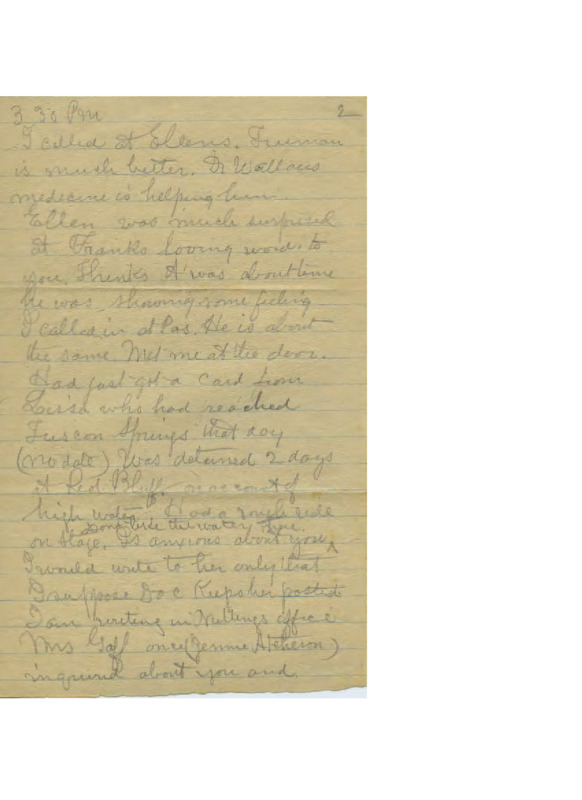 3 30 PM 2
I called at Ellens. Truman
is much better. Dr Wallaces
medecine is helping him.
Ellen was much surprised
at Franks loving word to
you. Thinks it was about time
he was showing some feeling
I called in at Pas. He is about
the same. Met me at the door.
Had just got a card from
who had reached
Tuscon Springs that day
(no date) Was detained 2 days
at Red Bluff on account of
high water. Had a rough ride
some tide the water
on stage. Is anxious about you ^
I would write to her only that
I suppose Doc Keeps her posted
I am writing in office
Mrs Goff once (Jennie )
inquired about you and